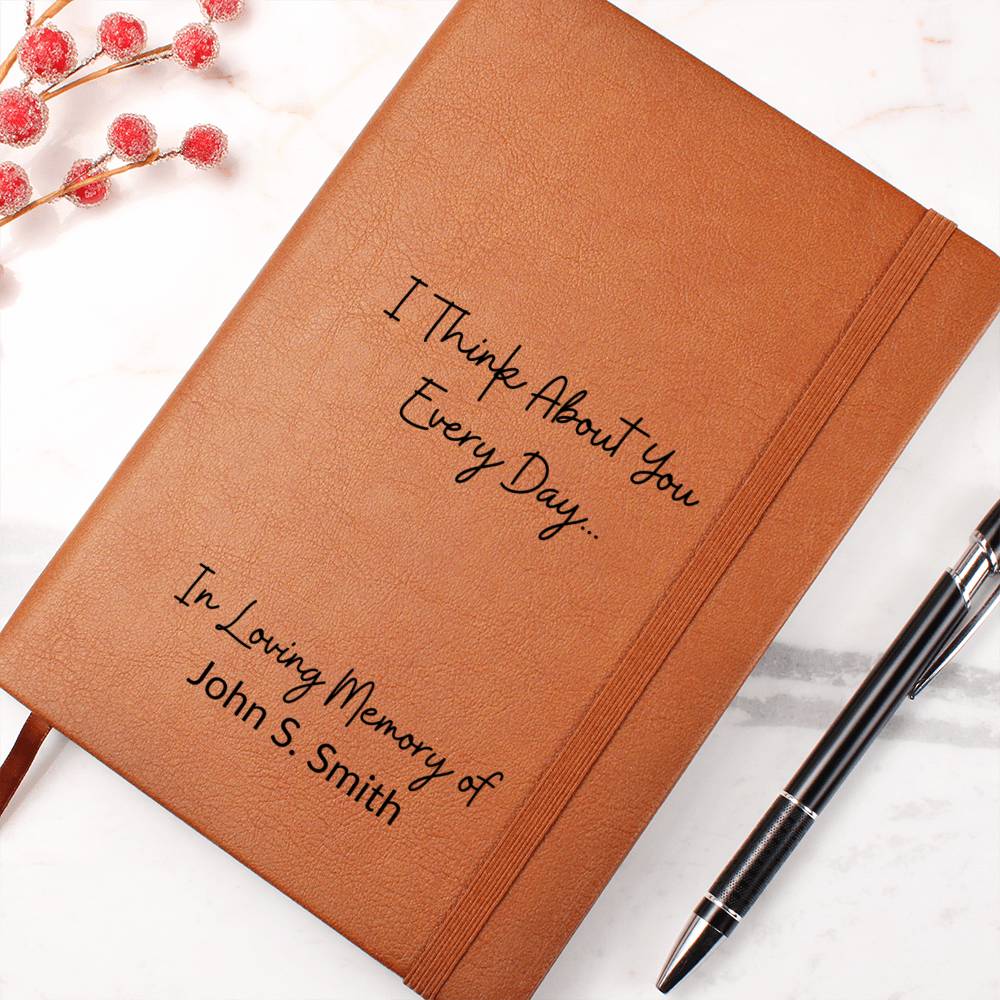 I Think About You
Every Day...
In Loving Memory of
John S. Smith